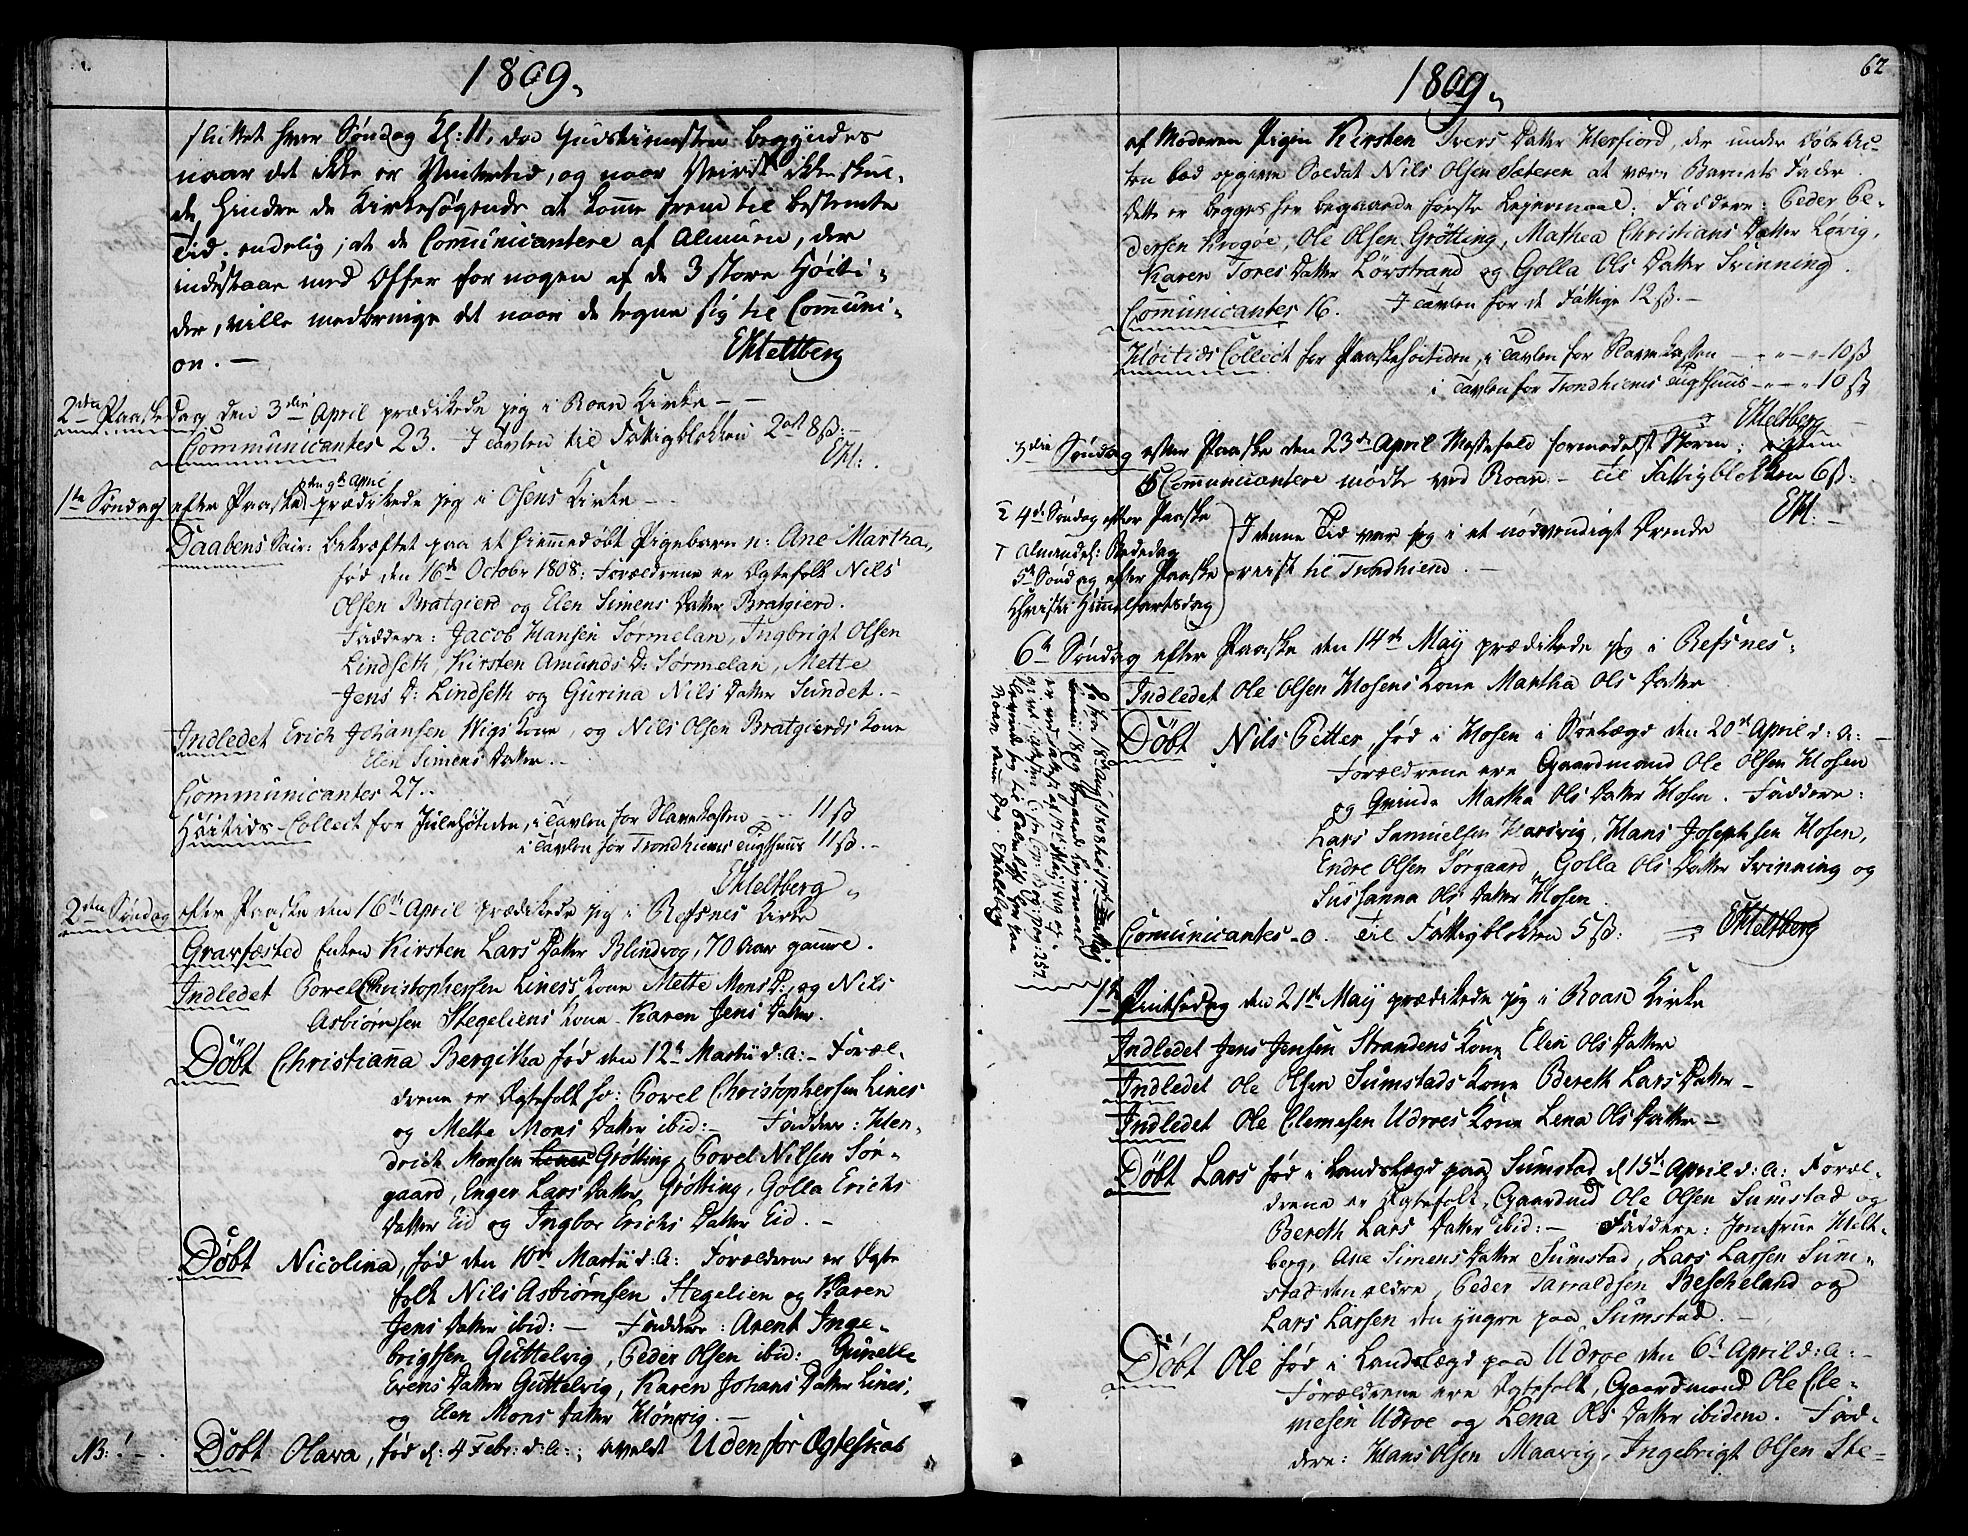 1809.
sluttet hver Søndag Kl: 11, da Gudstienesten begyndes
naar det ikke er Vintertid, og naar Veiret ikke skul-
de hindre de Kirkesøgende at komme frem til bestemte
Tid. endelig, at de Communicantere af Almuen, der
indestaae med Offer for nogen af de 3 store Høiti-
der, ville medbringe det naar de tegne sig til Communi-
on. — EHeltberg
2den Paaskedag den 3die April prædikede jeg i Roan Kirke — —
Communicantes 23. I Tavlen til Fattigblokken 2 8ß:
EH:.
den 9de April
1te Søndag efter Paaske prædikede jeg i Osens Kirke —
Daabens bekræftet paa et hiemmedøbt Pigebarn n: Ane Martha,
fød den 16de Octobr 1808: Forældrene er Ægtefolk Nils
Olsen Bratgierd og Elen Simens Datter Bratgierd.
Faddere: Jacob Hansen Sørmelan, Ingbrigt Olsen
Lindseth, Kirsten Amunds D: Sørmelan, Mette
Jens D: Lindseth og Gurina Nils Datter Sundet. —
Indledet Erich Johansen Wigs Kone, og Nils Olsen Bratgierds Kone
Elen Simens Datter. —
Communicantes 27. .
Høitids-Collect for Julehøtiden, i Tavlen for Slavekassen — 11 ß
i Tavlen for Trondhiems Tugthuus 11 ß. —
EHeltberg.
2den Søndag efter Paaske den 16de April prædikede jeg i Refsnes Kirke
Gravfæsted Enken Kirsten Lars Datter Blindvog, 70 Aar gamme.
Indledet Povel Christophersen Liness Kone Mette Mons D:, og Nils
Asbiørnsen Stegeliens Kone Karen Jens Datter.
Døbt Christianna Bergitha fød den 12te Martii d: a: — Foræl-
drene er Ægtefolk Povel Christophersen Lines
og Mette Mons Datter ibid: — Faddere: Hen-
drich Monsen Grøtting, Povel Nilsen Sør-
gaard, Enger Lars Datter Grøtting, Golla Erichs
Datter Eid og Ingbor Erichs Datter Eid. —
Døbt Nicolina, fød den 10de Martii d: a: Forældrene er Ægte
folk Nils Asbiørnsen Stegelien og Karen
Jens Datter ibid: — Faddere: Arent Inge-
brigtsen Guttelvig, Peder Olsen ibid: Gunelle
Evens Datter Guttelvig, Karen Johans Datter Lines,
og Elen Mons Datter Hønvig. —
NB: Døbt Olava, fød d: 4 Febr: d: a:, avelet Udenfor Ægteskab
1809. 62
af Moderen Pigen Kirsten Ivers Datter Herfiord, der under Døbe Ac-
ten lod opgive Soldat Nils Olsen Sæteren at være Barnets Fader.
Dette er begges her begaaede første Lejermaal. Faddere: Peder Pe-
dersen Krogøe, Ole Olsen Grøtting, Mathea Christians Datter Løvig,
Karen Tores Datter Lörstrand og Golla Ols Datter Svinning.
Communicantes 16. I Tavlen for de Fattige 12 ß. —
Høitids Collect for Paaskehøitiden, i Tavlen for Slavekassen — " — " 10 ß
i Tavlen for Trondhiems Tugthuus — " — " 10 ß
EHeltberg
3die Søndag efter Paaske den 23de April Messefald formedelst Storm;
5 Communicantere mødte ved Roan — til Fattigblokken 6 ß:
EH: —
4de Søndag efter Paaske
Almindel: Bededag
5te Søndag efter Paaske
Christi Himmelfartsdag
I denne Tid var jeg i et nødvendigt Ærende
reist til Trondhiem. —
6te Søndag efter Paaske den 14de Maij prædikede jeg i Refsnes.
Indledet Ole Olsen Hosens Kone Martha Ols Datter
Døbt Nils Petter, fød i Hosen i Sønlægd den 20de April d: a: —
Forældrene ere Gaardmand Ole Olsen Hosen
og Qvinde Martha Ols Datter Hosen. Faddere:
Lars Samuelsen Harsvig, Hans Josephsen Hosen,
Endre Olsen Sørgaard, Golla Ols Datter Svinning og
Sussanna Ols Datter Hosen.
Comunicantes — 0. Til Fattigblokken 5 ß: EHeltberg
1te Pintsedag den 21de Maij prædikede jeg i Roan Kirke
Indledet Jens Jensen Strandens Kone Elen Ols Datter
Indledet Ole Olsen Sumstads Kone Bereth Lars Datter —
Indledet Ole Clemesen Udroes Kone Lena Ols Datter —
Døbt Lars fød i Landslægd paa Sumstad d 15de April d: a: Foræl-
drene er Ægtefolk, Gaardmd Ole Olsen Sumstad og
Bereth Lars Datter ibid: — Faddere: Jomfrue Helt-
berg, Ane Simens Datter Sumstad, Lars Larsen Sum-
stad den ældre, Peder Tarraldsen Bescheland og
Lars Larsen den yngre paa Sumstad. —
Døbt Ole fød i Landslægd paa Udroe den 6te April d: a: —
Forældrene ere Ægtefolk, Gaardmand Ole Cle-
mesen Udroe og Lena Ols Datter ibidem. Fad-
dere: Hans Olsen Maavig, Ingebrigt Olsen Ste-